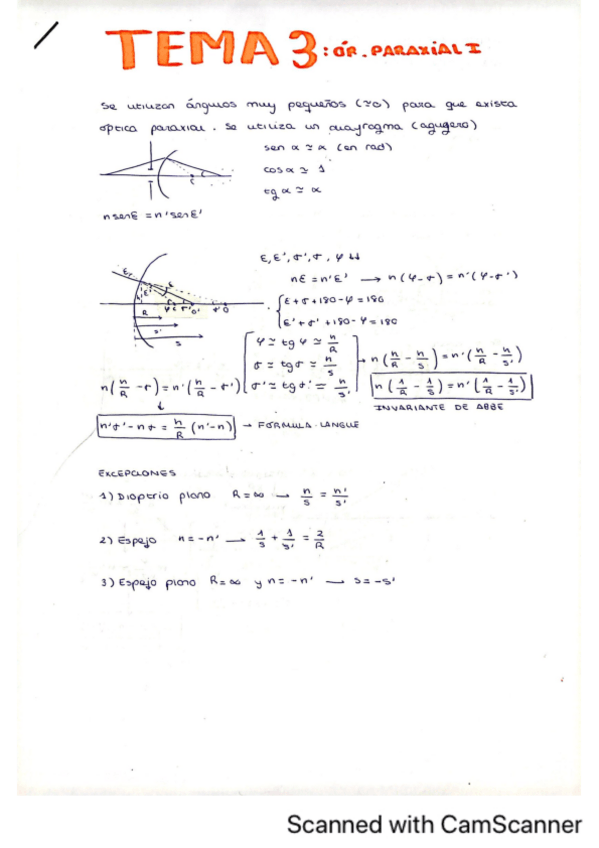 TEMA 3: ÓP. PARAXIAL I
Se utilizan ángulos muy pequeños (≃0) para que exista
óptica paraxial. Se utiliza un diafragma (agugero)
sen α ≃ α (en rad)
cos α ≃ 1
tg α ≃ α
n senε = n' senε'
ε, ε', σ', σ, φ ↓↓
nε = n'ε' → n(φ-σ) = n'(φ-σ')
ε + σ + 180 - φ = 180
ε' + σ' + 180 - φ = 180
φ ≃ tg φ ≃ h/R
σ ≃ tg σ ≃ h/s
σ' ≃ tg σ' ≃ h/s'
n(h/R - h/s) = n'(h/R - h/s')
n(h/R - σ) = n'(h/R - σ')
n(1/R - 1/s) = n'(1/R - 1/s')
INVARIANTE DE ABBE
n'σ' - nσ = h/R (n' - n) → FÓRMULA LANGUE
EXCEPCIONES
1) Dioptrio plano R = ∞ → n/s = n'/s'
2) Espejo n = -n' → 1/s + 1/s' = 2/R
3) Espejo plano R = ∞ y n = -n' → s = -s'
Scanned with CamScanner